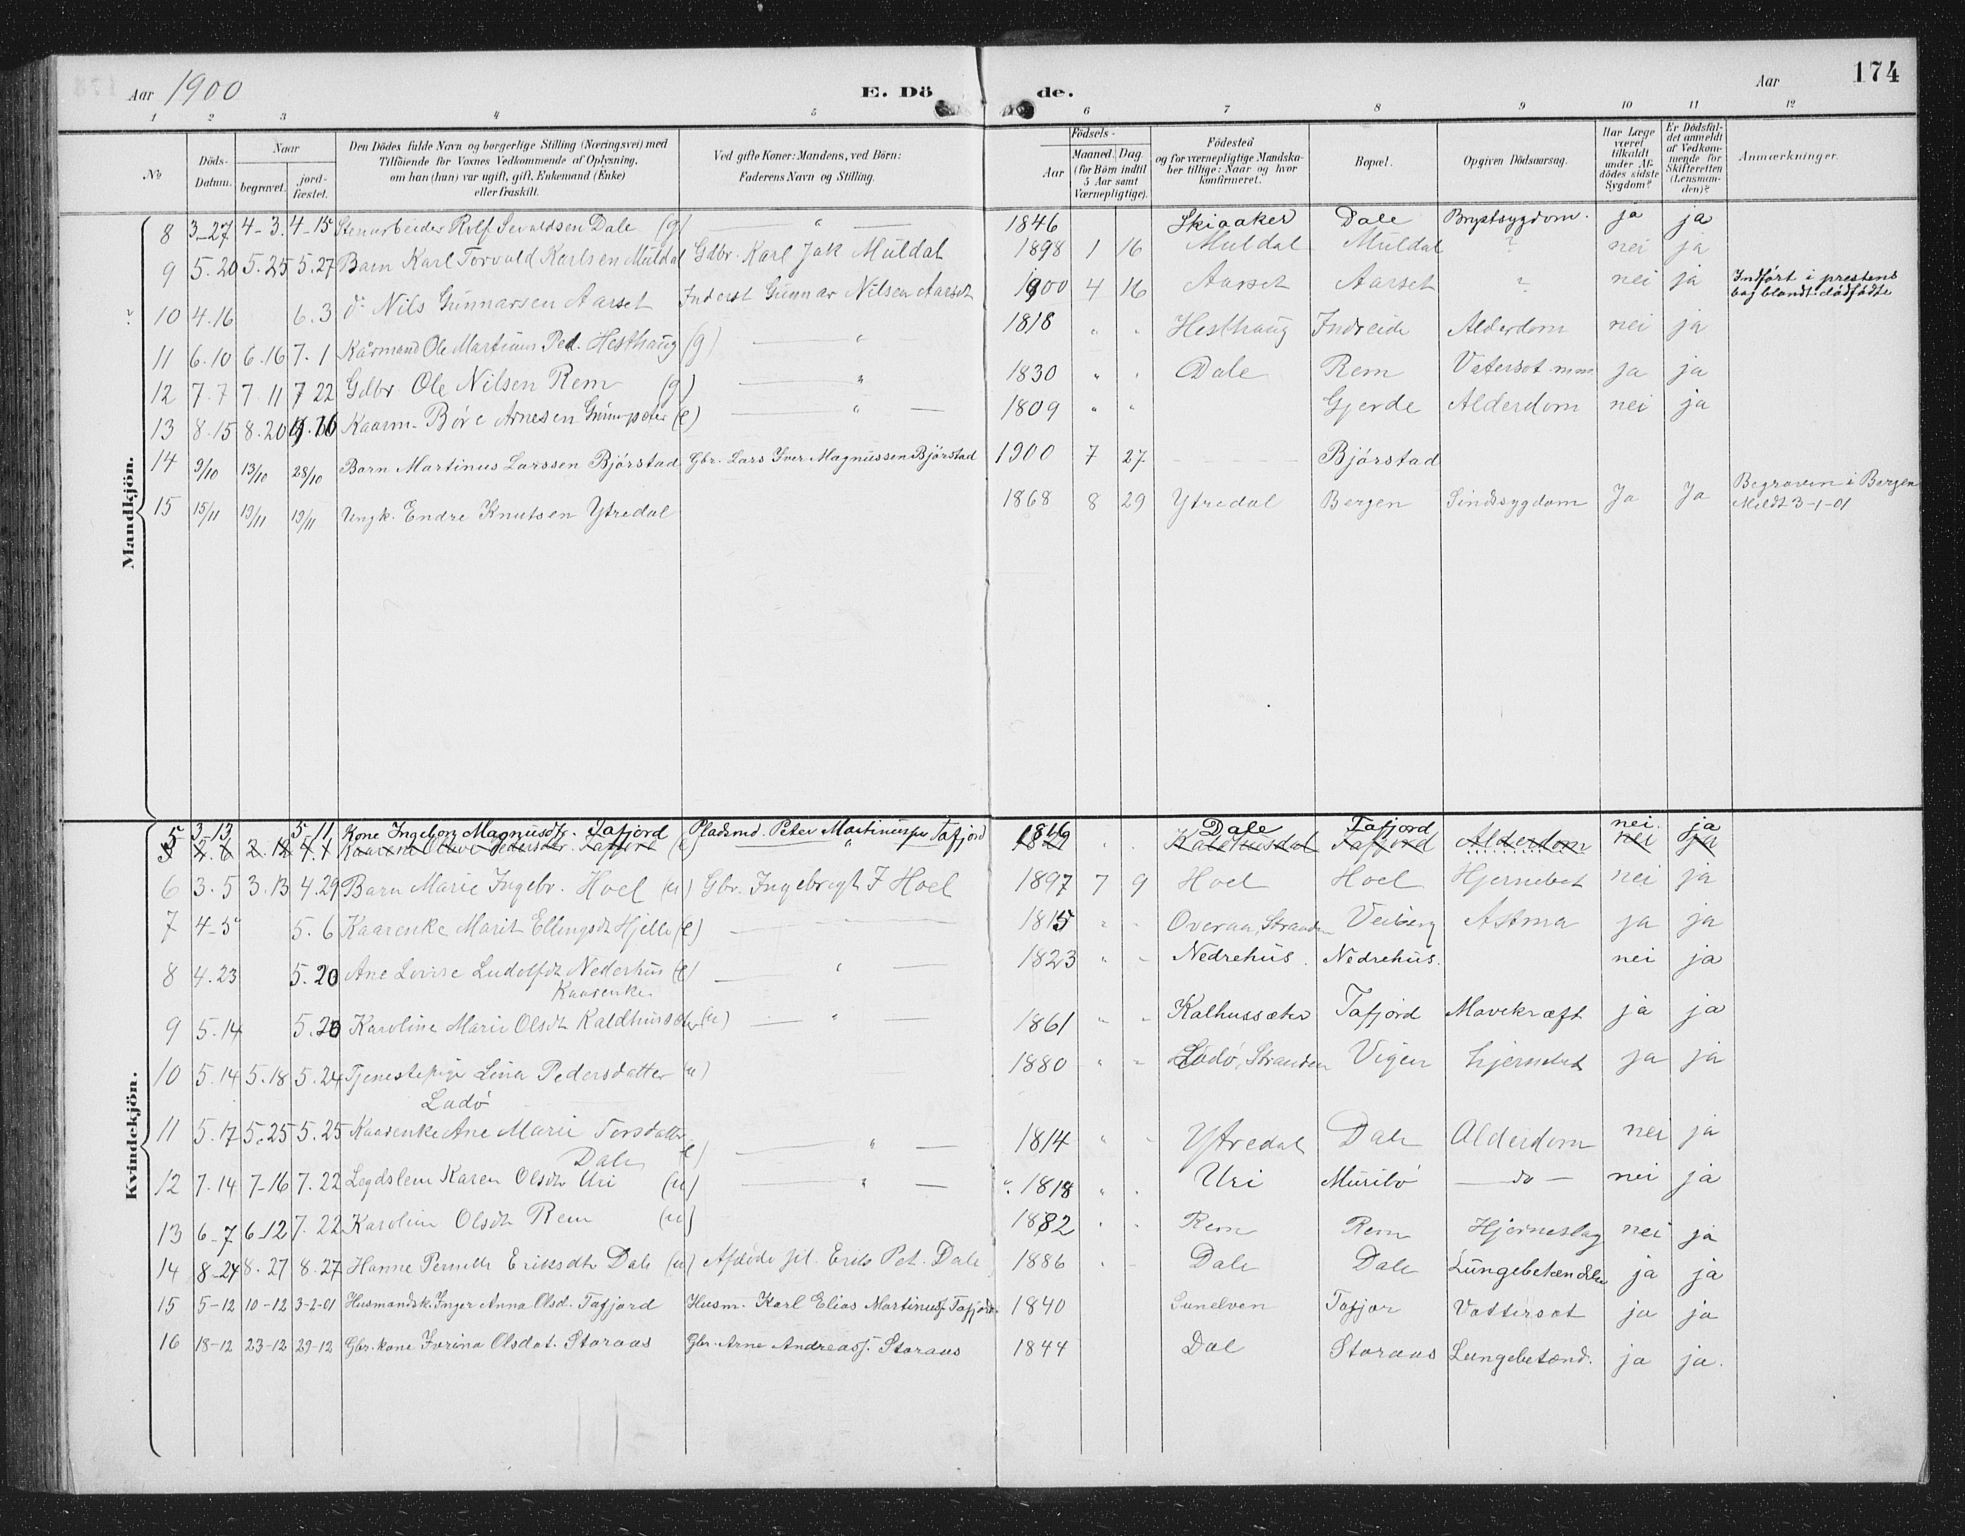 Aar 1900 E. Döde. Aar 174
1 2 3 4 5 6 7 8 9 10 11 12
No Döds-Datum. Naar begravet. jord-fæstet. Den Dödes fulde Navn og borgerlige Stilling (Næringsvei) med Tilföiende for Voxnes Vedkommende af Oplysning, om han (hun) var ugift, gift, Enkemand (Enke) eller fraskilt. Ved gifte Koner: Mandens, ved Börn: Faderens Navn og Stilling. Födsels- Aar Maaned. Dag. (for Börn indtil 5 Aar samt Værnepligtige). Födested og for værnepligtige Mandskaber tillige: Naar og hvor konfirmeret. Bopæl. Opgiven Dödsaarsag. Har Læge været tilkaldt under Afdödes sidste Sygdom? Er Dödsfaldet anmeldt af Vedkommende for Skifteretten (Lensmanden)? Anmærkninger.
Mandkjön.
8 3-27 4-3. 4-15 Stenarbeider Rolf Dale (g) " 1846 Skiaaker Dale Brystsygdom. ja ja
9 5.20 5.25 5.27 Barn Karl Torvald Karlsen Muldal Gdbr. Karl Jak Muldal 1898 1 16 Muldal Muldal ? nei ja
10 4.16 6.3 do Nils Gunnarsen Aarset Inderst Gunnar Nilsen Aarset 1900 4 16 Aarset Aarset ? nei ja Indført i prestens bog blandt dødfødte
11 6.10 6.16 7.1 Kårmand Ole Martinus Ped. Hesthaug (g) " 1818 " " Hesthaug Indreide Alderdom nei ja
12 7.7 7.11 7 22 Gdbr Ole Nilsen Rem (g) " 1830 " " Dale Rem Vatersot ja ja
13 8.15 8.20 Kaarm. Børe Arnesen (e) " 1809 " " Gjerde Alderdom nei ja
14 9/10 13/10 28/10 Barn Martinus Larssen Bjørstad Gbr. Lars Iver Magnussen Bjørstad 1900 7 27 Bjørstad
15 15/11 19/11 19/11 Ungk. Endre Knutsen Ytredal 1868 8 29 Ytredal Bergen Sindssygdom Ja Ja Begraven i Bergen Meldt 3-1-01
Kvindekjön.
5 3-13 5-11 Kone Ingeborg Magnusdtr. Tafjord Pladsmd. Peter Martinus Tafjord 1846 Dale Tafjord nei. ja
1829 Kaldhusdal Tafjord Alderdom nei ja
6 3.5 3.13 4.29 Barn Marie Ingebr. Hoel (u) Gbr. Ingebrigt J Hoel 1897 7 9 Hoel Hoel Hjernebet nei ja
7 4-5 5.6 Kaarenke Marit Ellingsdt Hjelle (e) 1815 " " Overaa, Stranden Veiberg Astma ja ja
8 4.23 5.20 Ane Lovise Ludolfdt Nederhus (e) Kaarenke " 1823 " " Nedrehus. Nedrehus. nei ja
9 5.14 5.20 Karoline Marie Olsdt Kaldhussæter (u) " 1861 " " Kalhussæter Tafjord Mavekræft ja ja
10 5.14 5.18 5.24 Tjenestepige Lina Pedersdatter (u) Ladø 1880 " " Ladø, Stranden Vigen Hjernebet ja ja
11 5.17 5.25 5.25 Kaarenke Ane Marie Torsdatter Dale (e) " 1814 " " Ytredal Dale Alderdom nei ja
12 7.14 7-16 7.22 Legdslem Karen Olsdtr Uri (u) " 1818 " " Uri Muribø do nei ja
13 6-7 6.12 7.22 Karoline Olsdt Rem (u) 1882 " " Rem Rem Hjerneslag nei ja
14 8-24 8.27 8.27 Hanne Pernille Eriksdtr Dale (u) Afdøde pl. Erik Pet. Dale 1886 " - Dale Dale Lungebetændelse ja ja
15 5-12 10-12 3-2-01 Husmandsk. Inger Anna Olsd. Tafjord Husm. Karl Elias Martinus Tafjord 1840 Tafjor Vattersot ja ja
16 18-12 23-12 29-12 Gbr. kone Ivrina Olsdat. Storaas Gbr. Arne Andreas Storaas 1844 Dal Storaas Lungebetænd. ja ja.